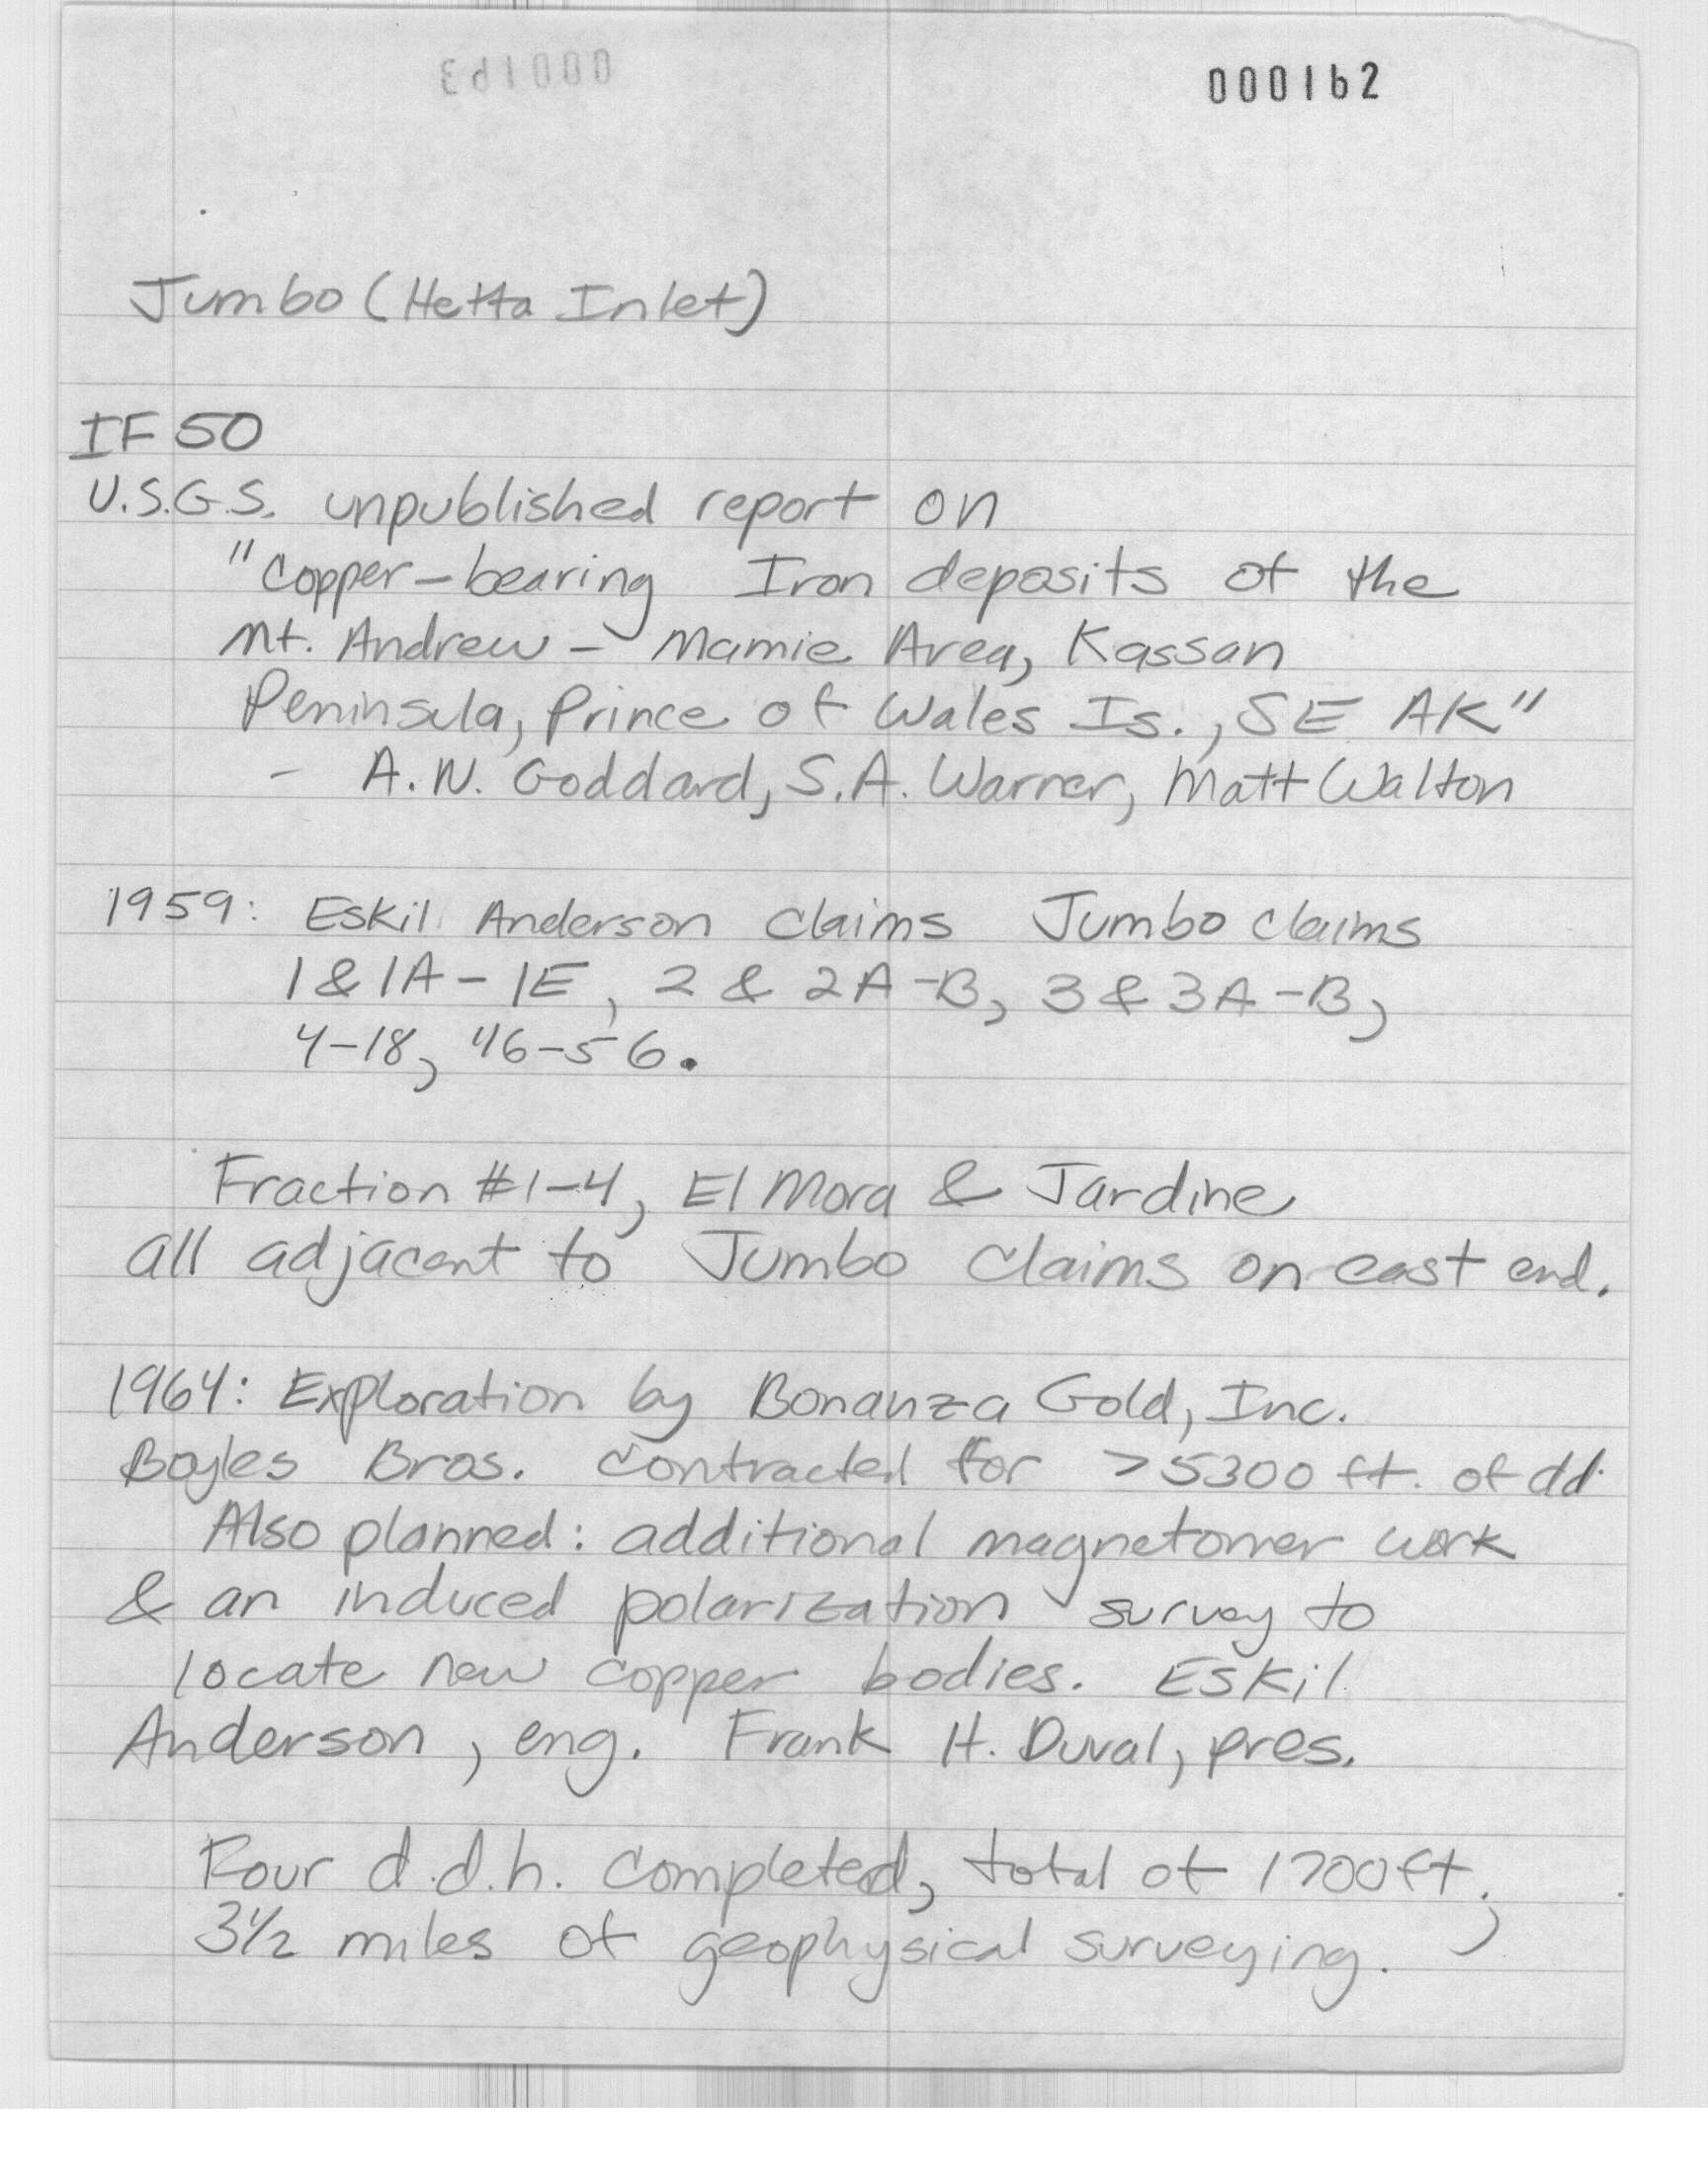 000162
Jumbo (Hetta Inlet)
IF 50
U.S.G.S. unpublished report on
"Copper-bearing Iron deposits of the
Mt. Andrew - Mamie Area, Kassan
Peninsula, Prince of Wales Is., SE AK"
- A.N. Goddard, S.A. Warner, Matt Walton
1959: Eskil Anderson claims Jumbo claims
1 & 1A - 1E, 2 & 2A-B, 3 & 3A-B,
4-18, 46-56.
Fraction #1-4, El Mora & Jardine
all adjacent to Jumbo claims on east end.
1964: Exploration by Bonanza Gold, Inc.
Boyles Bros. contracted for >5300 ft. of dd.
Also planned: additional magnetomer work
& an induced polarization survey to
locate new copper bodies. Eskil
Anderson, eng. Frank H. Duval, pres.
Four d.d.h. completed, total of 1700 ft.;
3 1/2 miles of geophysical surveying.